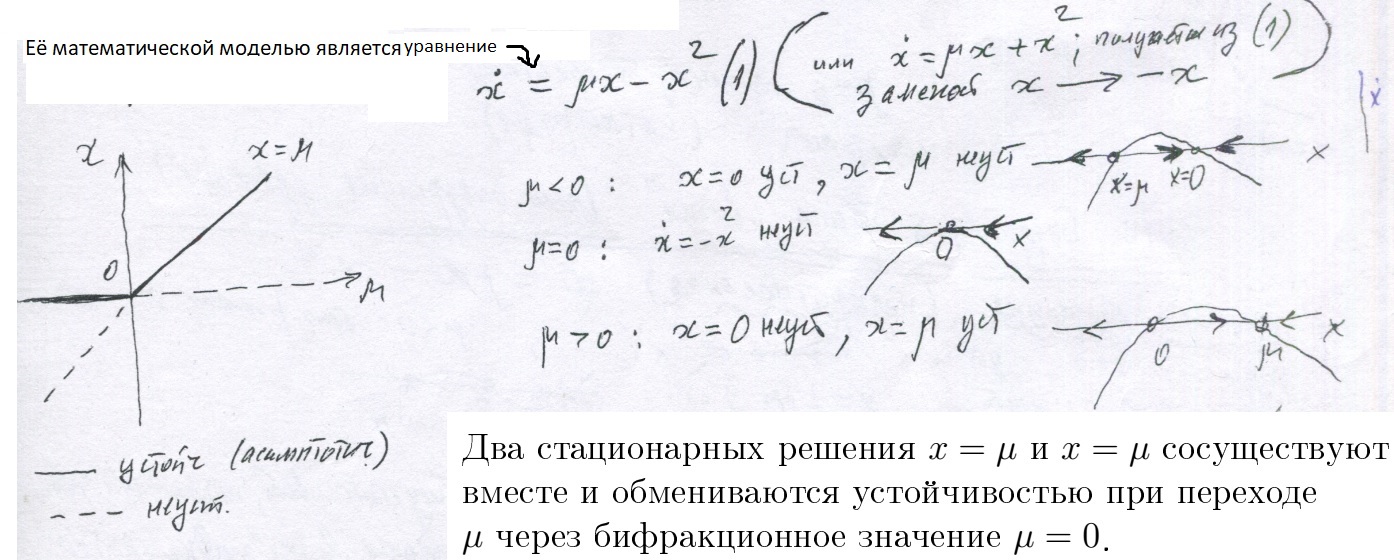 Её математической моделью является уравнение
ẋ = μx − x² (1) (или ẋ = μx + x²; получается из (1)
заменой x → −x)
ẋ
x
x = μ
0
μ
μ<0 : x=0 уст, x=μ неуст
x=μ x=0 x
μ=0 : ẋ=−x² неуст
0 x
μ>0 : x=0 неуст, x=μ уст
0 μ x
устойч (асимптотич.)
неуст.
Два стационарных решения x = μ и x = μ сосуществуют
вместе и обмениваются устойчивостью при переходе
μ через бифракционное значение μ = 0.